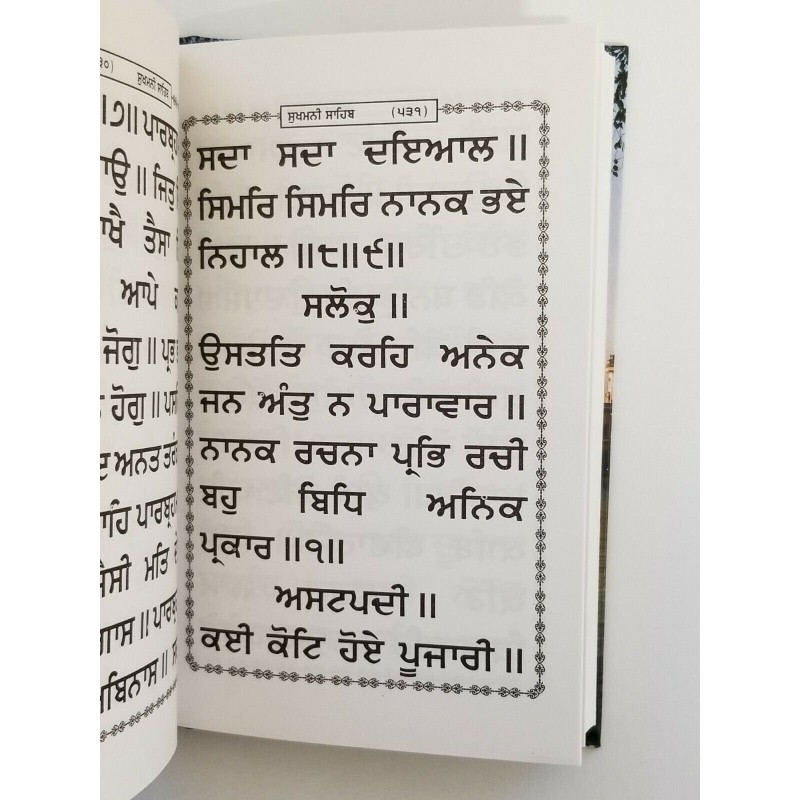 ੩੦)
ਸੁਖਮਨੀ ਸਾਹਿਬ
।੭॥ ਪਾਰਬ੍ਰਹ
ਾਉ ॥ ਜਿਤੁ
ਾਖੈ ਤੈਸਾ
ਆਪੇ ਕ
ਜੋਗੁ ॥ ਪ੍ਰਭ
ਨ ਹੋਗੁ ॥ ਪਸ
ਦ ਅਨਤ ਤਰੰ
ਾਹਿ ਪਾਰਬ੍ਰਹ
ਜੈਸੀ ਮਤਿ ਦੇ
ਗਾਸ ॥ ਪਾਰਬ੍ਰ
ਬਿਨਾਸ ॥ ਸ
ਸੁਖਮਨੀ ਸਾਹਿਬ (੫੩੧)
ਸਦਾ ਸਦਾ ਦਇਆਲ ॥
ਸਿਮਰਿ ਸਿਮਰਿ ਨਾਨਕ ਭਏ
ਨਿਹਾਲ ॥੮॥੯॥
ਸਲੋਕੁ ॥
ਉਸਤਤਿ ਕਰਹਿ ਅਨੇਕ
ਜਨ ਅੰਤੁ ਨ ਪਾਰਾਵਾਰ ॥
ਨਾਨਕ ਰਚਨਾ ਪ੍ਰਭਿ ਰਚੀ
ਬਹੁ ਬਿਧਿ ਅਨਿਕ
ਪ੍ਰਕਾਰ ॥੧॥
ਅਸਟਪਦੀ ॥
ਕਈ ਕੋਟਿ ਹੋਏ ਪੂਜਾਰੀ ॥